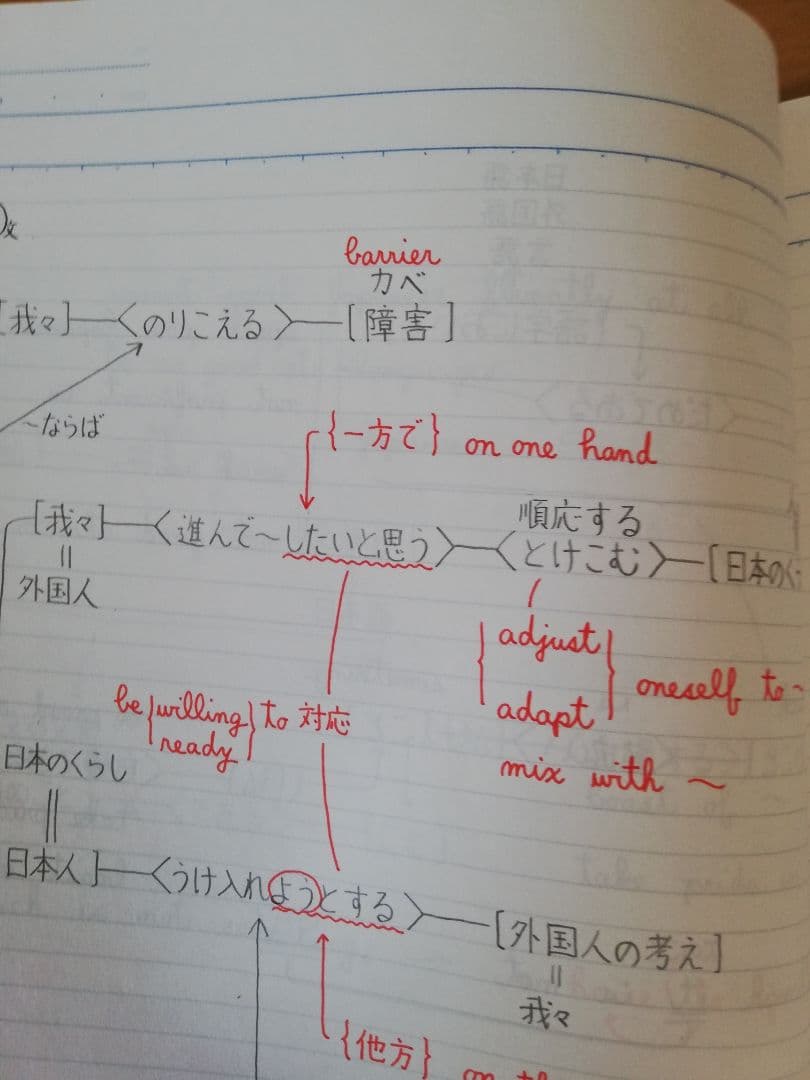 文
barrier
カベ
[我々]―〈のりこえる〉―[障害]
~ならば
{一方で} on one hand
順応する
[我々]―〈進んで~したいと思う〉―〈とけこむ〉―[日本のく
||
外国人
{adjust
adapt} oneself to~
mix with ~
be {willing
ready} to 対応
日本のくらし
||
日本人]―〈うけ入れようとする〉―[外国人の考え]
||
我々
{他方} on